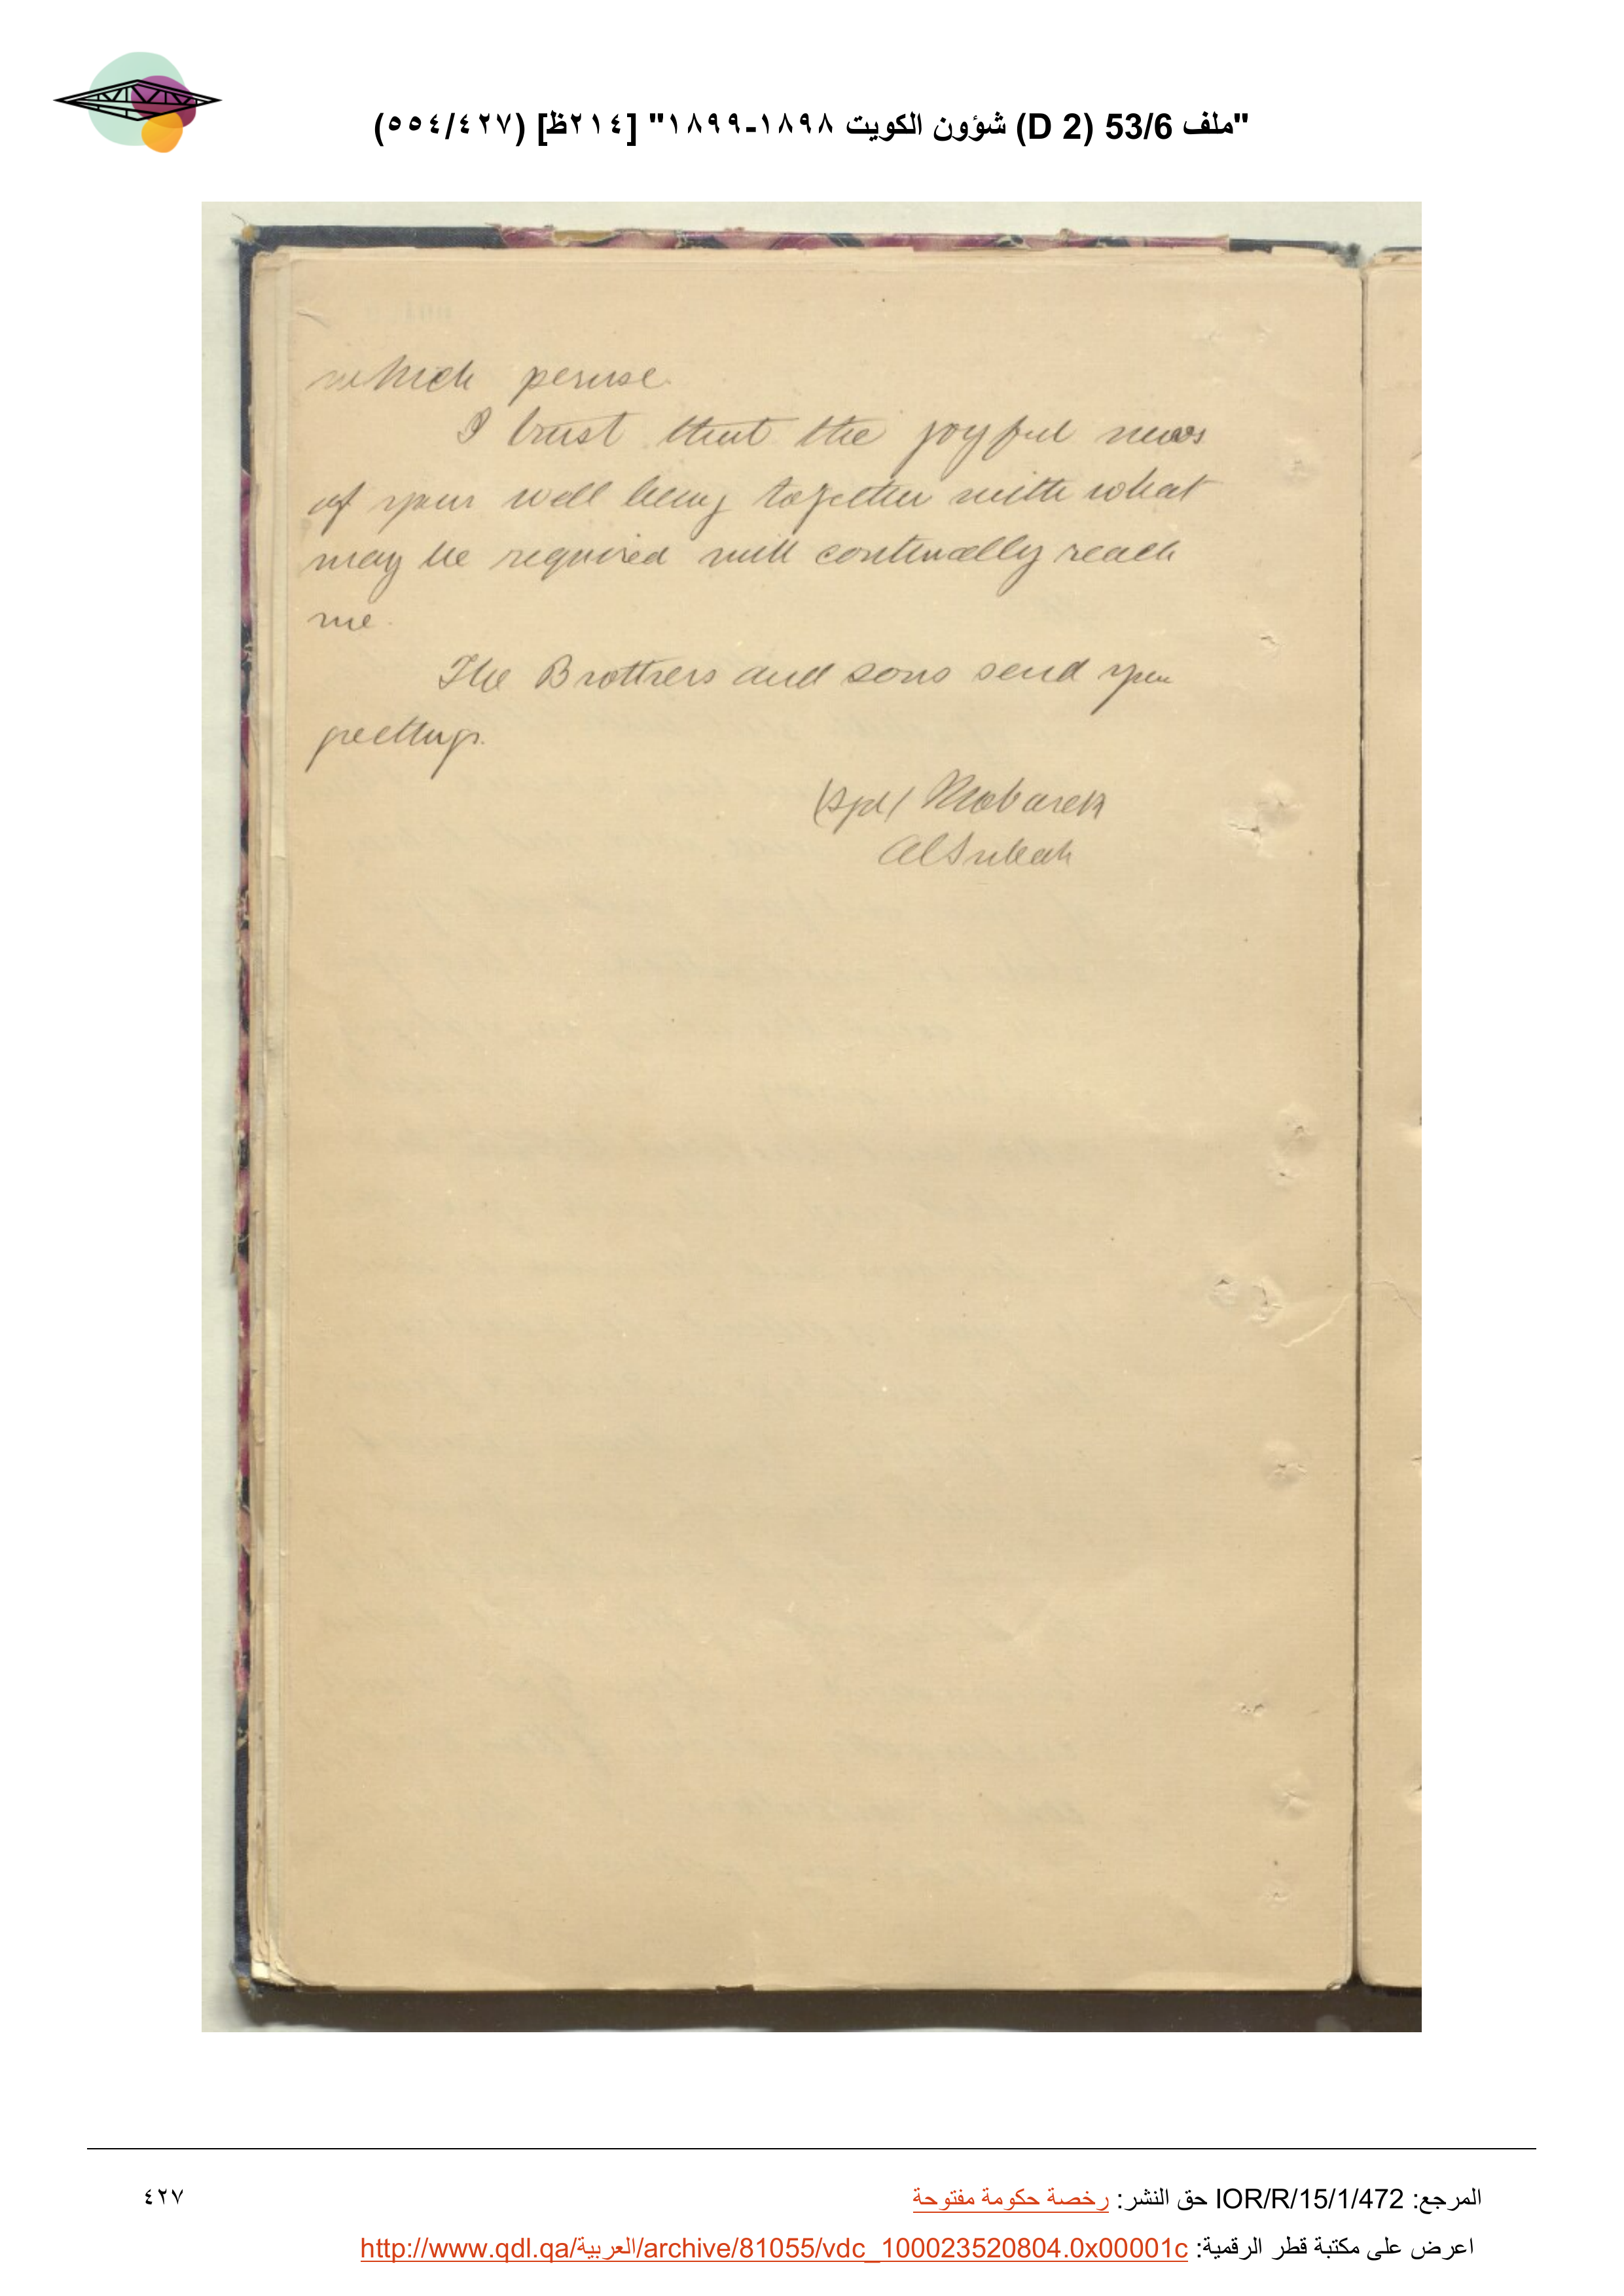 "ملف 53/6 (D 2) شؤون الكويت ١٨٩٨-١٨٩٩" [٢١٤ظ] (٥٥٤/٤٢٧)
which peruse.
I trust that the joyful news
of your well being together with what
may be required will continually reach
me.
The Brothers and sons send you
greetings.
(Sgd) Mobarek
AlSubah
المرجع: IOR/R/15/1/472 حق النشر: رخصة حكومة مفتوحة
٤٢٧
اعرض على مكتبة قطر الرقمية: http://www.qdl.qa/العربية/archive/81055/vdc_100023520804.0x00001c